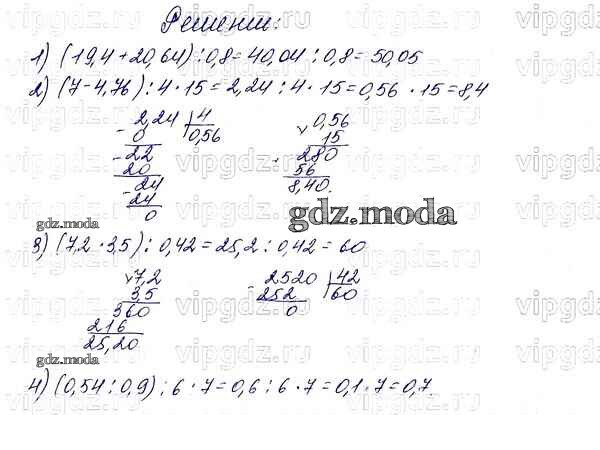 Решении:
1) (19,4+20,64):0,8=40,04:0,8=50,05
2) (7-4,76):4·15=2,24:4·15=0,56·15=8,4
- 2,24 | 4
0 | 0,56
- 22
20
- 24
24
0
× 0,56
15
+ 280
56
8,40.
gdz.moda
gdz.moda
3) (7,2·3,5):0,42=25,2:0,42=60
× 7,2
3,5
360
216
25,20
- 2520 | 42
252 | 60
0
gdz.moda
4) (0,54:0,9):6·7=0,6:6·7=0,1·7=0,7.
vipgdz.ru